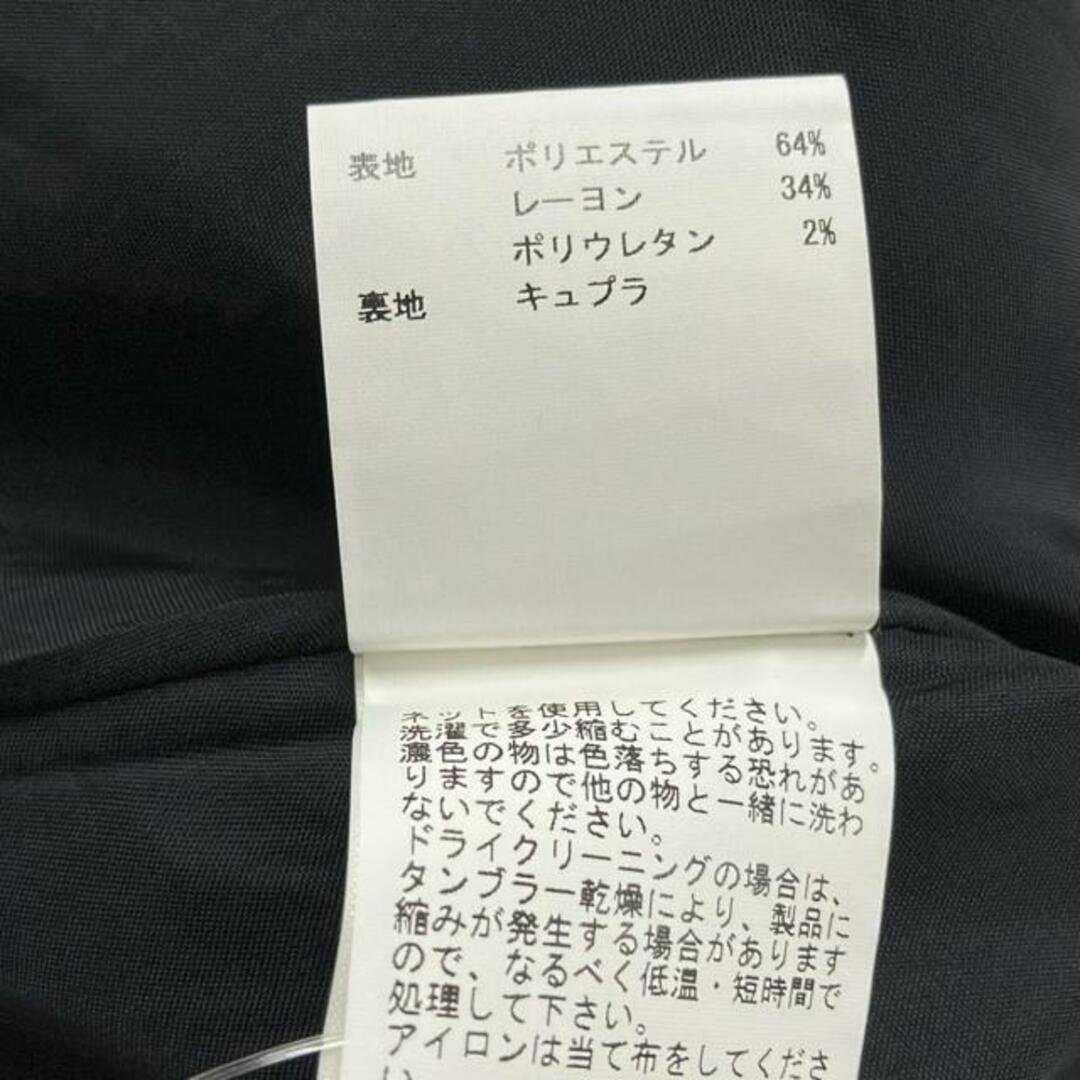 表地 ポリエステル 64%
レーヨン 34%
ポリウレタン 2%
裏地 キュプラ
ネットを使用してください。
洗濯で多少縮むことがあります。
濃色の物は色落ちする恐れがあ
りますので他の物と一緒に洗わ
ないでください。
ドライクリーニングの場合は、
タンブラー乾燥により、製品に
縮みが発生する場合があります
ので、なるべく低温・短時間で
処理して下さい。
アイロンは当て布をしてくださ
い